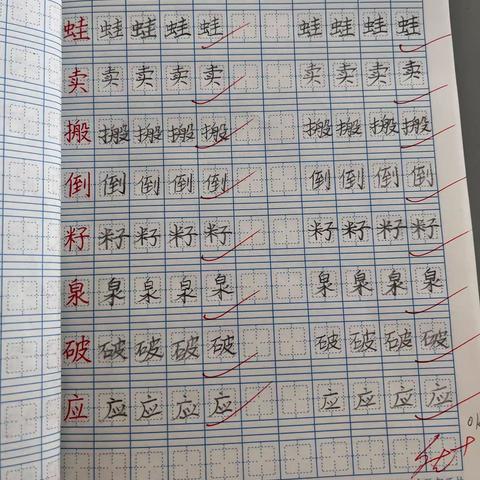 蛙蛙蛙蛙蛙 蛙蛙蛙蛙
卖卖卖卖卖 卖卖卖卖
搬搬搬搬搬 搬搬搬搬
倒倒倒倒倒 倒倒倒倒
籽籽籽籽籽 籽籽籽籽
泉泉泉泉泉 泉泉泉泉
破破破破破 破破破破
应应应应应 应应应应